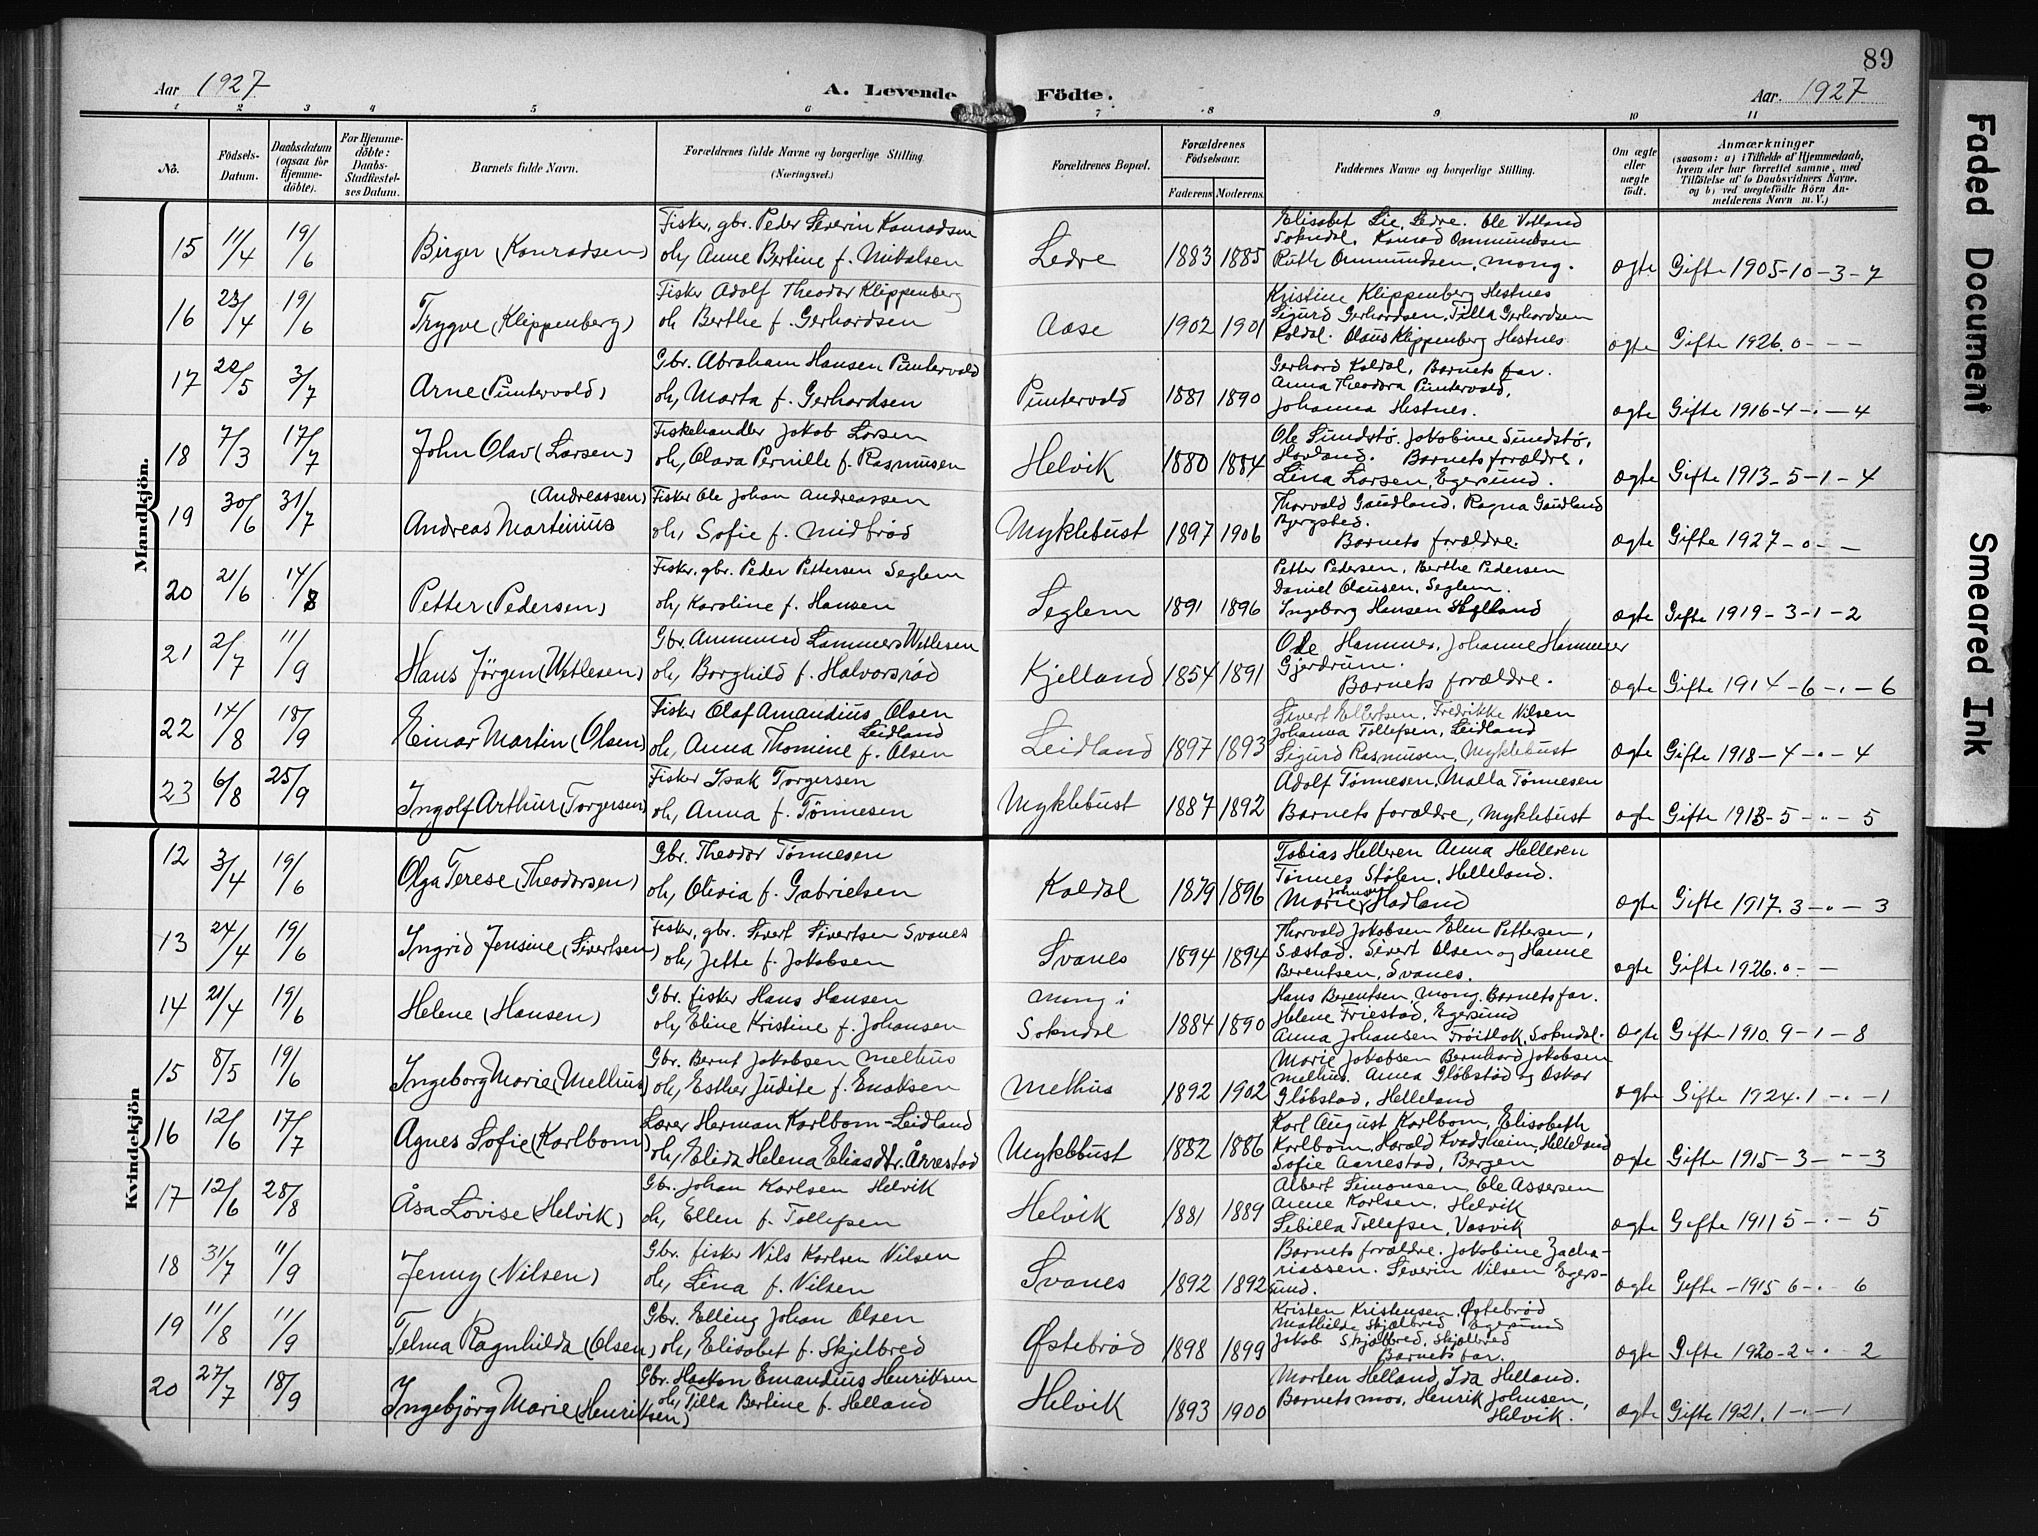 89
Aar 1927
A. Levende Födte.
Aar. 1927
1 2 3 4 5 6 7 8 9 10 11
No.
Födsels-Datum.
Daabsdatum (ogsaa for Hjemme-döbte).
For Hjemme-döbte: Daabs-Stadfæstel-ses Datum.
Barnets fulde Navn.
Forældrenes fulde Navne og borgerlige Stilling. (Næringsvei.)
Forældrenes Bopæl.
Forældrenes Födselsaar.
Faderens Moderens
Faddernes Navne og borgerlige Stilling.
Om ægte eller uægte födt.
Anmærkninger
(saasom: a) i Tilfælde af Hjemmedaab, hvem der har forrettet samme, med Tilföielse af to Daabsvidners Navne, og b) ved uægtefödte Börn An-melderens Navn m. V.)
Mandkjön.
15 11/4 19/6 Birger (Konradsen) Fisker, gbr. Peder Severin Konradsen oh, Anne Bertine f. Mikalsen Ledre 1883 1885 Elisabet Lie, Ledre. Ole Votland Sokndal. Konrad Ommundsen Ruth Ommundsen, Mong. ogte Gifte 1905-10-3-7
16 23/4 19/6 Trygve (Klippenberg) Fisker Adolf Theodor Klippenberg oh Berthe f. Gerhardsen Aase 1902 1901 Kristine Klippenberg Hestnes Sigurd Gerhardsen, Tilla Gerhardsen Koldal. Olaus Klippenberg Hestnes ogte Gifte 1926. 0 - - -
17 20/5 3/7 Arne (Puntervold) Gbr. Abraham Hansen Puntervold oh, Marta f. Gerhardsen Puntervold 1881 1890 Gerhard Koldal, Barnets far. Anna Theodora Puntervold, Johanna Hestnes. ogte Gifte 1916-4-.-4
18 7/3 17/7 John Olav (Larsen) Fiskehandler Jakob Larsen oh, Olava Pernille f. Rasmusen Helvik 1880 1884 Ole Sundstø. Jakobine Sundstø, Hovland. Barnets forældre, Lina Larsen, Egersund. ogte Gifte 1913-5-1-4
19 30/6 31/7 (Andreassen) Andreas Martinius Fisker Ole Johan Andreassen oh, Sofie f. Midbrød Myklebust 1897 1906 Thorvald Gaudland, Ragna Gaudland Bjergsted. Barnets forældre. ogte Gifte 1927-0--
20 21/6 14/8 Petter (Pedersen) Fisker, gbr. Peder Pettersen Seglem oh, Karoline f. Hansen Seglem 1891 1896 Petter Pedersen, Berthe Pedersen Daniel Olausen, Seglem. Ingeborg Hansen ogte Gifte 1919-3-1-2
21 2/7 11/9 Hans Jörgen (Wetlesen) Gbr. Ammund Lammers Wetlesen oh, Borghild f. Halvorsrød Kjelland 1854 1891 Ole Hammer, Johanne Hammer Gjerdrum. Barnets forældre. ogte Gifte 1914-6-.-6
22 14/8 18/9 Einar Martin (Olsen) Fisker Olaf Amandius Olsen Leidland oh, Anna Thomine f. Olsen Leidland 1897 1893 Sivert Ellertsen, Fredrikke Nilsen Johanna Tollefsen, Leidland Sigurd Rasmusen, Myklebust ogte Gifte 1918-4-.-4
23 6/8 25/9 Ingolf Arthur (Torgersen) Fisker Isak Torgersen oh, Anna f. Tönnesen Myklebust 1887 1892 Adolf Tönnesen, Malla Tönnesen Barnets forældre, Myklebust ogte Gifte 1913-5-.-5
Kvindekjön
12 3/4 19/6 Olga Terese (Theodorsen) Gbr. Theodor Tönnesen oh, Olivia f. Gabrielsen Koldal 1879 1896 Tobias Helleren Anna Helleren Tönnes Stølen, Helleland. Marie Johnsen Hadland ogte Gifte 1917. 3-.-3
13 24/4 19/6 Ingrid Jensine (Sivertsen) Fisker, gbr. Sivert Sivertsen Svanes oh, Jette f. Jakobsen Svanes 1894 1894 Thorvald Jakobsen Elen Pettersen, Sæstad. Sivert Olsen og Hanne Berentsen, Svanes. ogte Gifte 1926. 0 - -
14 21/4 19/6 Helene (Hansen) Gbr. fisker Hans Hansen oh, Eline Kristine f. Johansen Mong i Sokndal 1884 1890 Hans Berentsen, Mong. Barnets far. Helene Friestad, Egersund Anna Johansen Frøitlok, Sokndal. ogte Gifte 1910. 9-1-8
15 8/5 19/6 Ingeborg Marie (Melhus) Gbr. Bernt Jakobsen Melhus oh, Esther Judite f. Enoksen Melhus 1892 1902 Marie Jakobsen Bernhard Jakobsen Melhus. Anna Gløbstad og Oskar Gløbstad, Helleland ogte Gifte 1924. 1-.-1
16 12/6 17/7 Agnes Sofie (Karlbom) Lærer Herman Karlbom-Leidland oh, Elida Helena Eliasdtr. Årrestad Myklebust 1882 1886 Karl August Karlbom, Elisabeth Karlbom, Harald Kvadsheim, Helleland Sofie Aarrestad, Bergen ogte Gifte 1915-3-.-3
17 12/6 28/8 Åsa Lovise (Helvik) Gbr. Johan Karlsen Helvik oh, Ellen f. Tollefsen Helvik 1881 1889 Albert Simonsen, Ole Assersen Anne Karlsen, Helvik Sibilla Tollefsen, Vasvik ogte Gifte 1911 5-.-5
18 31/7 11/9 Jenny (Nilsen) Gbr. fisker Nils Karlsen Nilsen oh, Lina f. Nilsen Svanes 1892 1892 Barnets forældre. Jakobine Zacha-riassen. Severin Nilsen Egers-sund. ogte Gifte -1915 6-.- 6
19 11/8 11/9 Telma Ragnhilda (Olsen) Gbr. Elling Johan Olsen oh, Elisabet f. Skjelbred Østebrød 1898 1899 Kristen Kristensen, Østebrød Mathilde Skjælbred, Egersund Jakob Skjælbred, Skjælbred Barnets far. ogte Gifte 1920-2-.-2
20 27/7 18/9 Ingebjörg Marie (Henriksen) Gbr. Haakon Emandius Henriksen oh, Tilla Bertine f. Helland Helvik 1893 1900 Morten Helland, Ida Helland. Barnets mor, Henrik Johnsen, Helvik. ogte Gifte 1921. 1-.-1
Faded Document
Smeared Ink